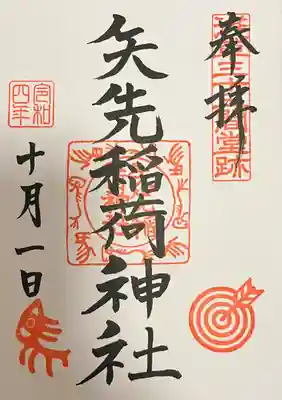 奉拝
三十三間堂跡
矢先稲荷神社
令和
四年
十月一日